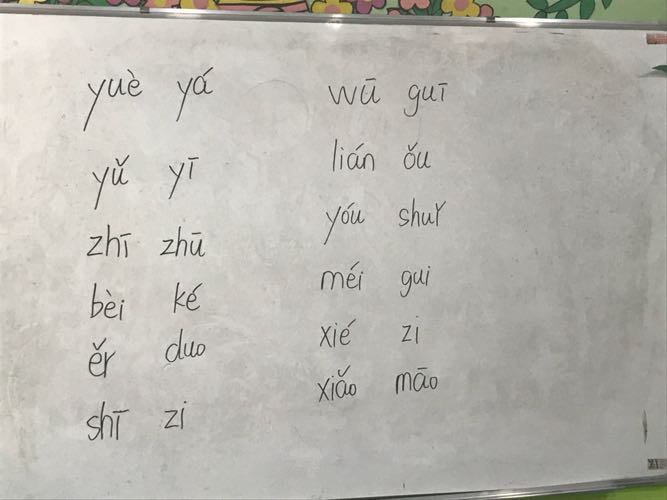 yuè yá
yǔ yī
zhī zhū
bèi ké
ěr duo
shī zi
wū guī
lián ǒu
yóu shuǐ
méi gui
xié zi
xiǎo māo